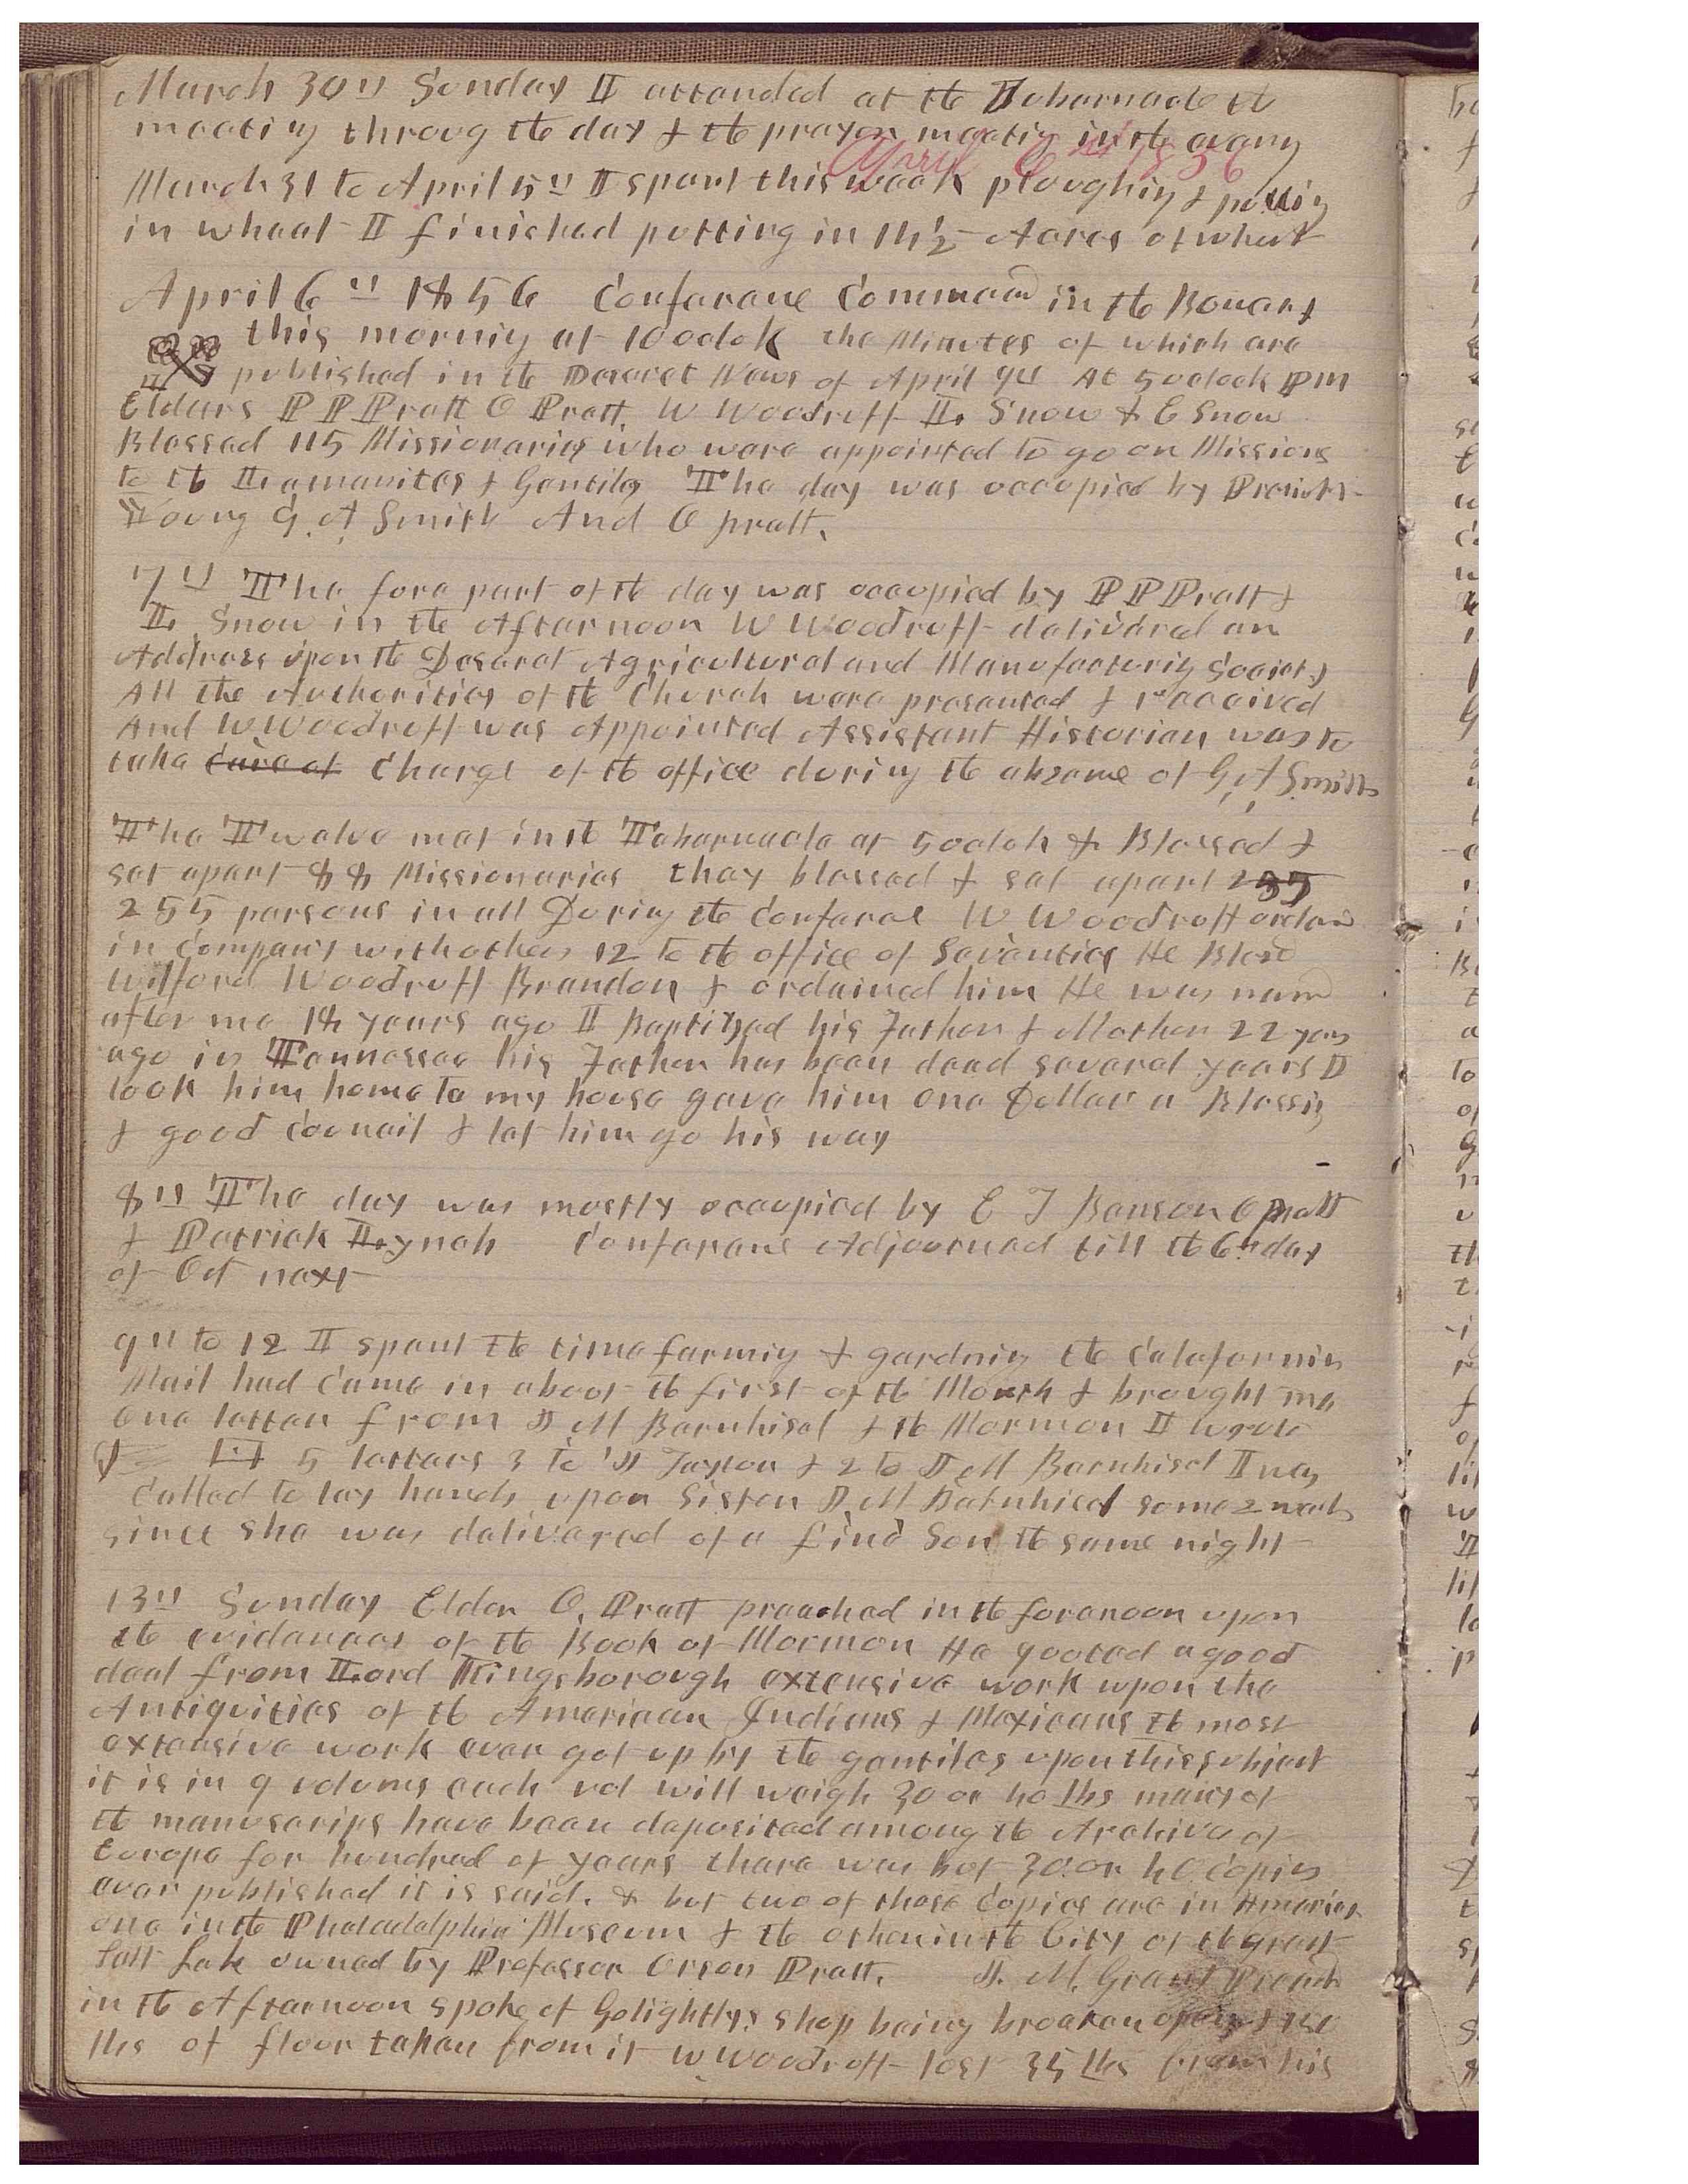 March 30th Sunday I attended at the Tabernacle the
meeting throug the day & the prayer meeting in the eveng
April 6th 1856
March 31 to April 5th I spent this week ploughing & putting
in wheat I finished putting in 14½ Acres of wheat
April 6th 1856 Conferanc Commencd in the Bowery
this morning at 10 oclok the Minutes of which are
published in the Deseret News of April 9th At 5 oclock PM
Elders P P Pratt O Pratt. W Woodruff L. Snow & E Snow
Blessed 115 Missionaries who were appointed to go on Missions
to the Lamanites & Gentiles The day was occupied by Presidet
Young G. A Smith And O pratt.
7th The fore part of the day was occupied by P P Pratt &
L. Snow in the Afternoon W Woodruff delivered an
Address upon the Deseret Agricultural and Manufacturing Society
All the Authorities of the Church were presented & received
And W Woodruff was Appointed Assistant Historian was to
take care of Charge of the office during the absence of G. A. Smith
The Twelve met in the Tabernacle at 5 oclok & Blessed &
set apart 88 Missionaries they blessed & set apart 255
255 persons in all During the Conferance W Woodruff ordaind
in Company with others 12 to the office of Seventies He Blesd
Wilford Woodruff Brandon & ordained him He was named
after me 18 years ago I Baptized his Father & Mother 22 years
ago in Tennessee his Father has been dead several years I
took him home to my house gave him one Dollar a Blessing
& good Council & let him go his way
8th The day was mostly occupied by E T Benson O pratt
& Patrick Lynch Conferanc Adjourned till the 6th day
of Oct next
9th to 12 I spent the time farming & gardning the Calafornia
Mail had came in about the first of the Month & brought me
one letter from J M Barnhisel & the Mormon I wrote
5 letters 3 to J Taylor & 2 to J M Barnhisel I was
Called to lay hands upon Sister J M Barnhisel some 2 weeks
since she was delivered of a fine Son the same night
13th Sunday Elder O. Pratt preached in the forenoon upon
the evidances of the Book of Mormon He quoted a good
deal from Lord Kingsborough extensive work upon the
Antiquities of the American Indians & Mexicans the most
extensive work ever got up by the gentiles upon this subject
it is in 9 volums each vol will weigh 30 or 40 lbs many of
the manuscrips have been deposited among the Archive of
Europe for hundred of years there was but 30 or 40 Copies
ever published it is said. & but two of those Copies are in America
one in the Pheladelphia Museum & the other in the City of the great
Salt Lake owned by Professor Orson Pratt. J. M. Grant Preach
in the Afternoon spoke of Golightlys shop being broaken open &
lbs of flour taken from it W Woodruff lost 35 lbs from his